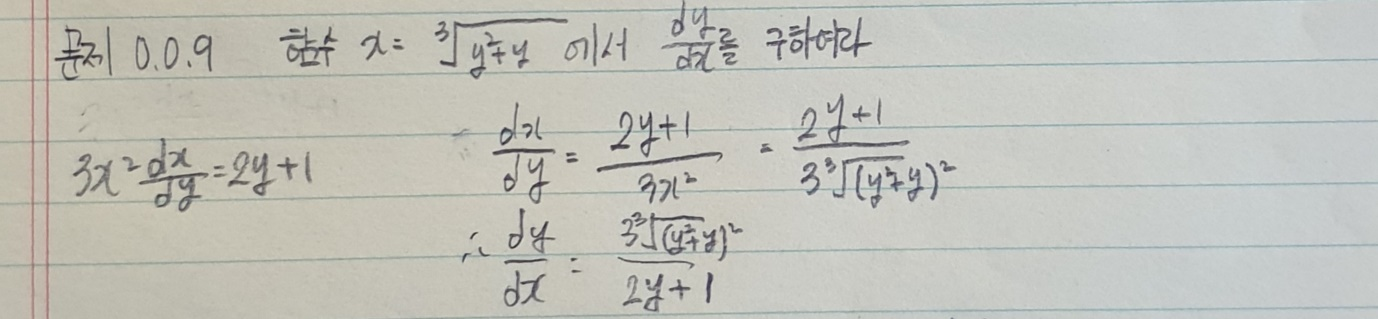 문제 0.0.9 함수 x = ∛(y²+y) 에서 dy/dx를 구하여라
3x² dx/dy = 2y+1 dx/dy = (2y+1)/(3x²) = (2y+1)/(3∛(y²+y)²)
∴ dy/dx = (3∛(y²+y)²)/(2y+1)